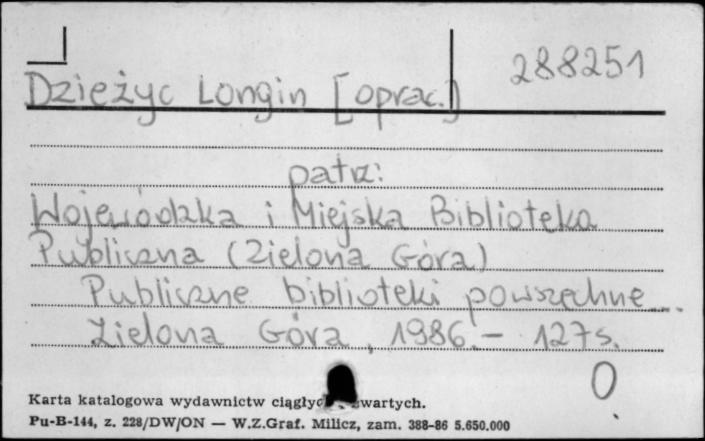 288251
Dzieżyc Longin [oprac.]
patrz:
Wojewódzka i Miejska Biblioteka
Publiczna (Zielona Góra)
Publiczne biblioteki powszechne...
Zielona Góra, 1986.- 127s.
0
Karta katalogowa wydawnictw ciągłyc wartych.
Pu-B-144, z. 228/DW/ON — W.Z.Graf. Milicz, zam. 388-86 5.650.000